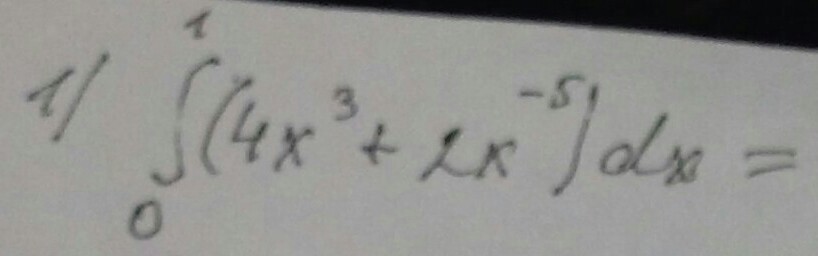 1) ∫₀¹ (4x³ + 2x⁻⁵) dx =